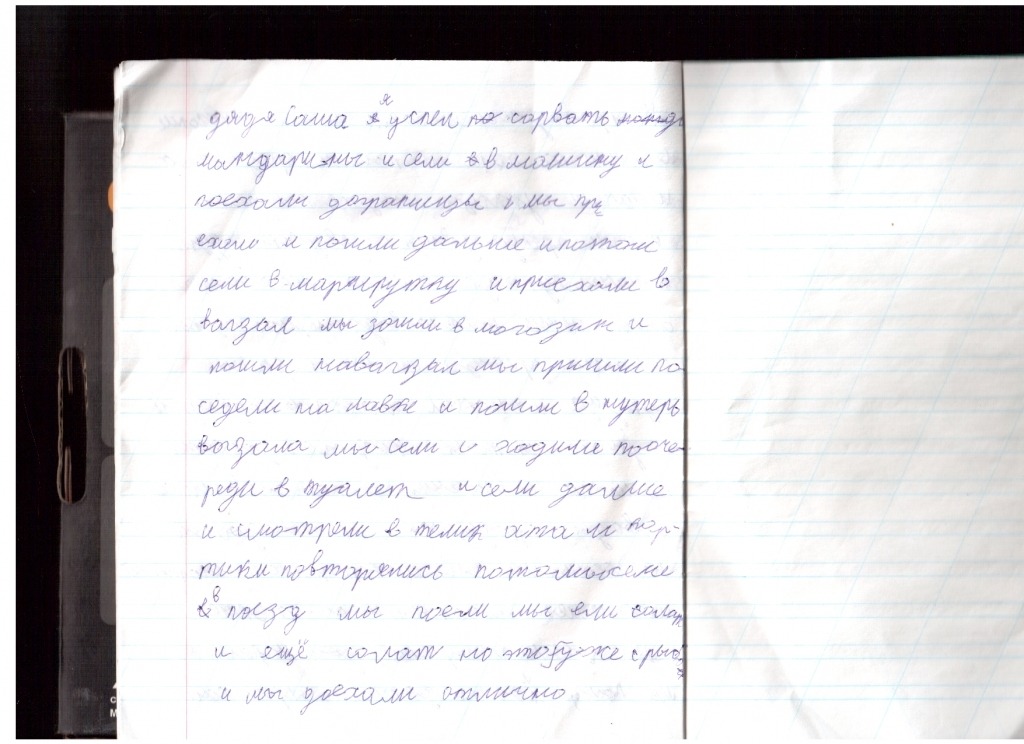 дядя Саша я успел сорвать
мандарины и сели в машину и
поехали дограницы и мы при
ехали и пошли дальше ипотом
сели в маршрутку и приехали в
вагзал мы зошли в могазин и
пошли навагзал мы пришли по
седели на лавке и пошли в нутерь
вагзала мы сели и ходили пооче-
реди в туалет и сели дальше
и смотрели в телик кар-
тики повторялись сели
в поезд мы поели мы ели салат
и ещё солат но уже с рыбой
и мы доехали отлично